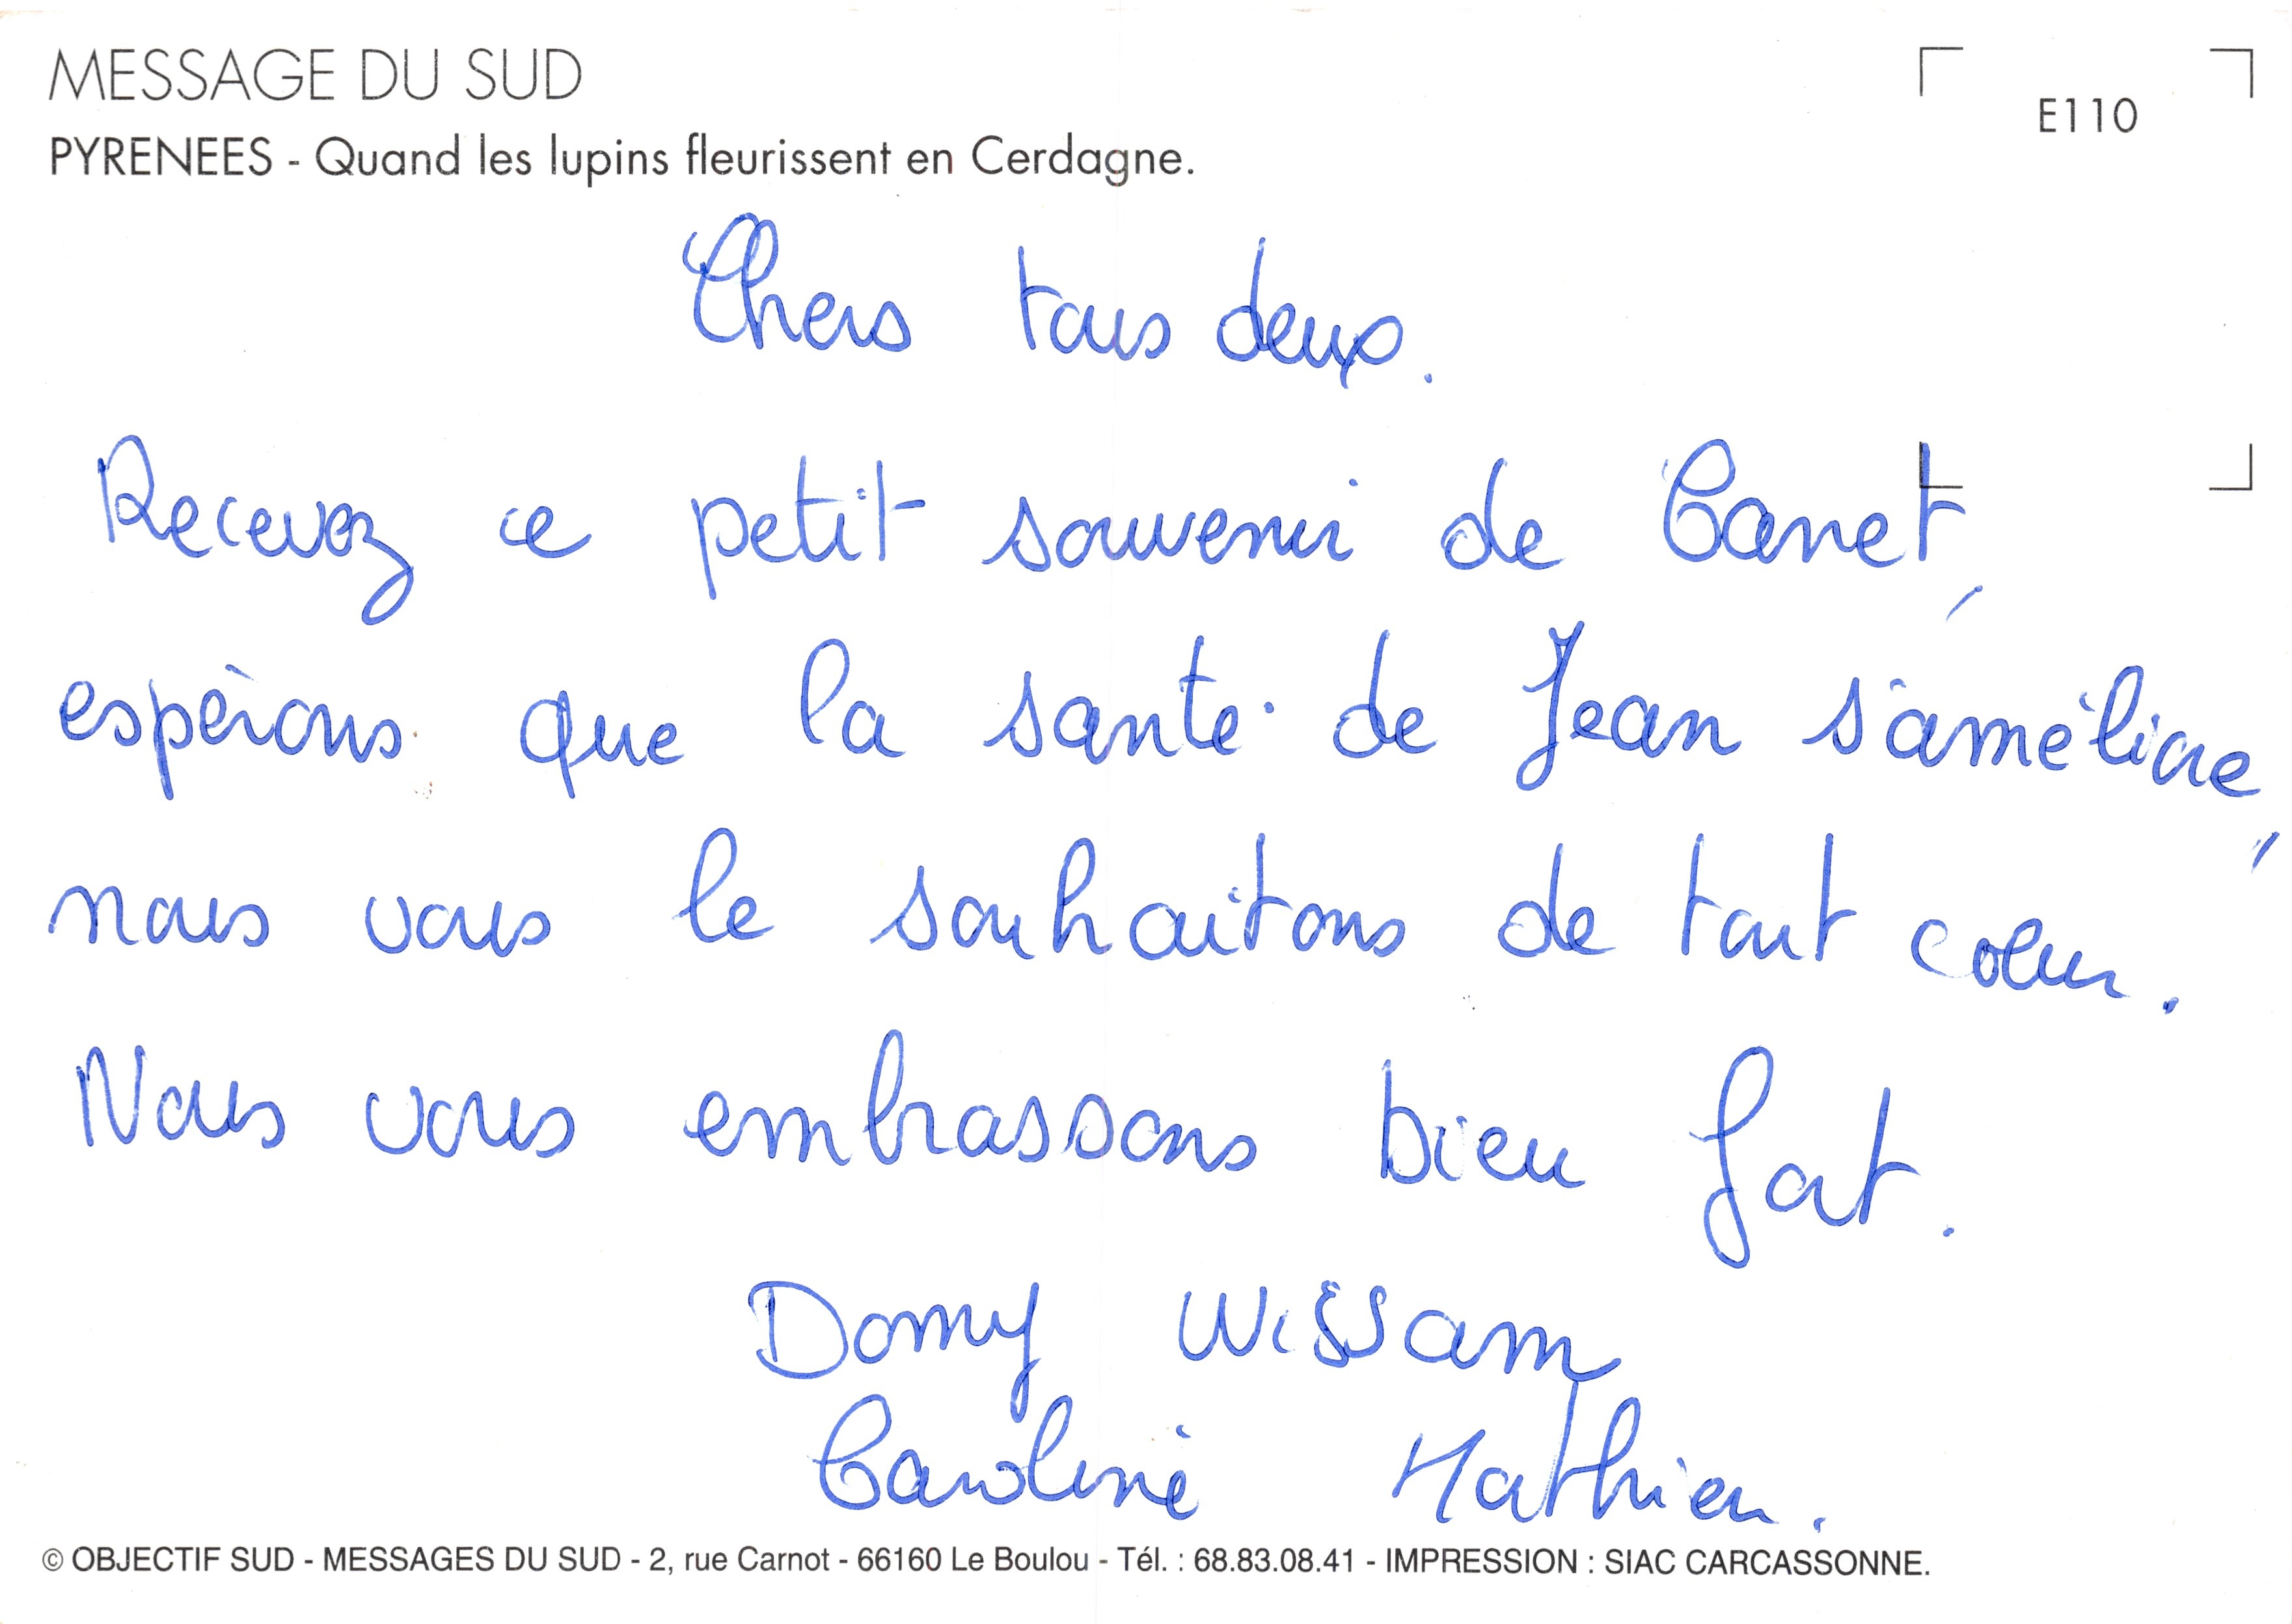 MESSAGE DU SUD
E110
PYRENEES - Quand les lupins fleurissent en Cerdagne.
Chers tous deux.
Recevez ce petit souvenir de Canet,
espérons que la santé de Jean s'améliore,
nous vous le souhaitons de tout coeur.
Nous vous embrassons bien fort.
Domy Wissam
Caroline Mathieu.
© OBJECTIF SUD - MESSAGES DU SUD - 2, rue Carnot - 66160 Le Boulou - Tél. : 68.83.08.41 - IMPRESSION : SIAC CARCASSONNE.